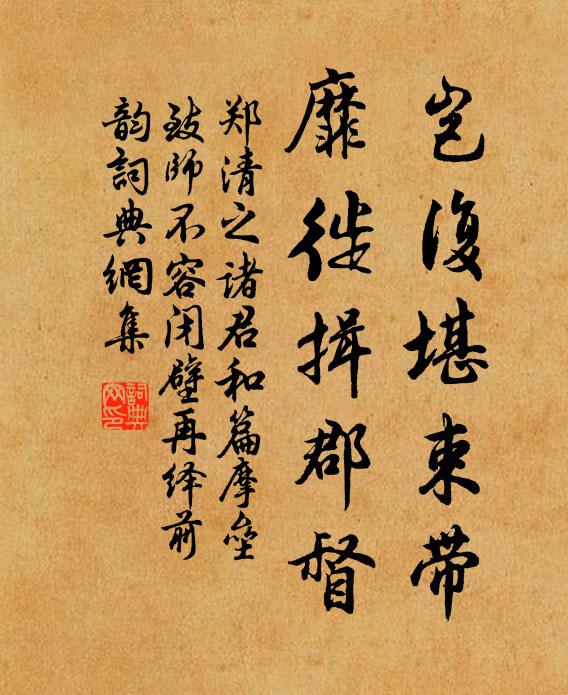 岂復堪束带
靡徙揖郡督
郑清之诸君和篇摩垒
致师不容闭壁再绎前
韵詞典網集
詞典網印